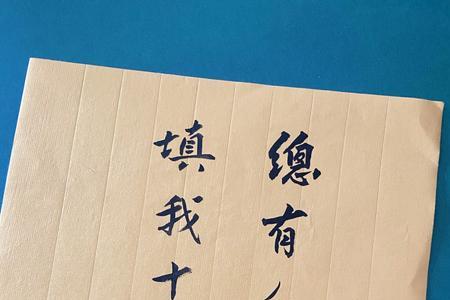 總有
填我十